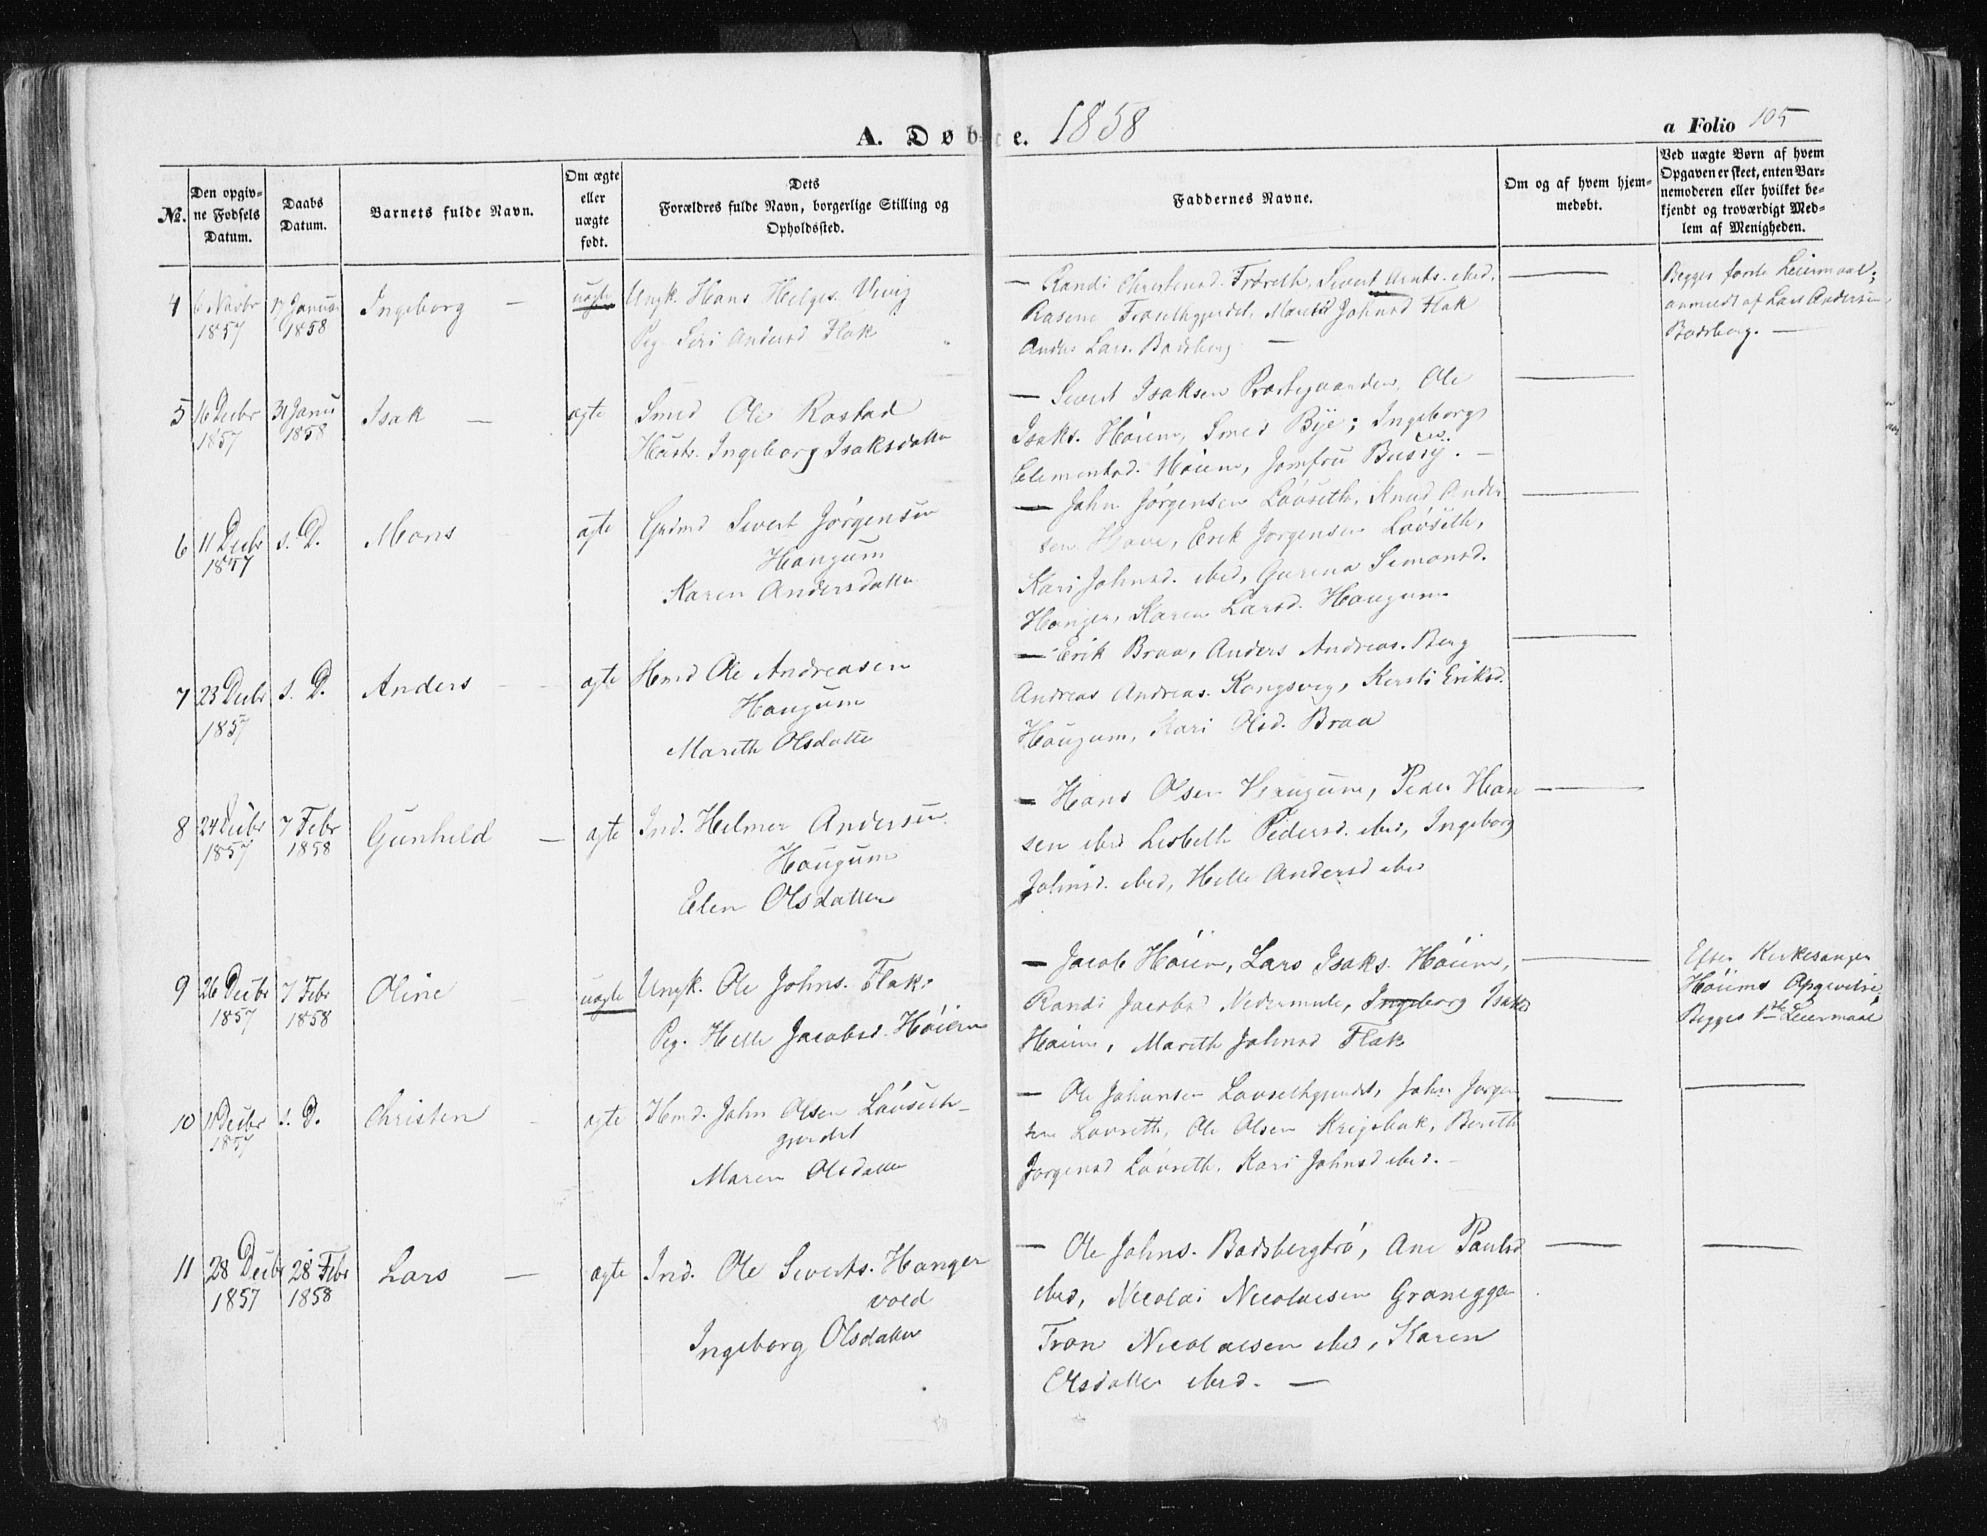 A. Døbte. 1858
a Folio 105
No.
Den opgiv-
ne Fødsels
Datum.
Daabs
Datum.
Barnets fulde Navn.
Om ægte
eller
uægte
født.
Dets
Forældres fulde Navn, borgerlige Stilling og
Opholdssted.
Faddernes Navne.
Om og af hvem hjem-
medøbt.
Ved uægte Børn af hvem
Opgaven er skeet, enten Bar-
nemoderen eller hvilket be-
kjendt og troværdigt Med-
lem af Menigheden.
4
6 Novbr
1857
17 Januar
1858
Ingeborg —
uægte
Ungk. Hans Helges. Vivig
Pig. Siri Andersd Flak
— Randi Christensd. Frøseth, Sivert Arnts. ibid.
Rasmus Frøsethgjerdet, Marith Johnsd Flak
Anders Lars. Badsberg —
—
Begges første Leiermaal;
anmeldt af Lars Andersen
Badsberg. —
5
16 Decbr
1857
31 Janu
1858
Isak —
ægte
Smed Ole Rostad
Hustr. Ingeborg Isaksdatter
— Sivert Isaksen Præstegaarden, Ole
Isaks. Høiem, Smed Bye; Ingeborg
Clementsd. Høiem, Jomfru Bussy. —
—
6
11 Decbr
1857
s. D.
Mons
ægte
Grdmd Sivert Jørgensen
Haugum
Karen Andersdatter
— John Jørgensen Løvseth, Knud Ander
sen Hove, Erik Jørgensen Løvseth,
Kari Johnsd. ibid, Gurina Simonsd.
Hanger, Karen Larsd. Haugum
—
7
23 Decbr
1857
s. D.
Anders —
ægte
Hmd Ole Andreasen
Haugum
Marith Olsdatter
— Erik Braa, Anders Andreas. Berg
Andreas Andreas. Kongsvig, Kersti Eriksd.
Haugum, Kari Olsd. Braa
—
8
24 Decbr
1857
7 Febr
1858
Gunhild —
ægte
Ind. Helmer Andersen
Haugum
Elen Olsdatter
— Hans Olsen Haugum, Peder Han
sen ibid Lisbeth Pedersd. ibid, Ingeborg
Johnsd. ibid, Helle Andersd ibid
—
9
26 Decbr
1857
7 Febr
1858
Oline —
uægte
Ungk. Ole Johns. Flak.
Pig. Helle Jacobsd. Høiem
— Jacob Høiem, Lars Isaks. Høiem,
Randi Jacobsd Nedermule, Ingeborg Isaksd
Høiem, Marith Johnsd Flak
—
Efter Kirkesanger
Høiems Opgivelse,
Begges 1ste Leiermaal
10
11 Decbr
1857
s. D.
Christen —
ægte
Hmd. John Olsen Løvseth-
gjerdet
Maren Olsdatter
— Ole Johansen Løvsethgjerdet, John Jørgen
sen Løvseth, Ole Olsen Krigsbak, Bereth
Jørgensd Løvseth, Kari Johnsd ibid. —
—
—
11
28 Decbr
1857
28 Febr
1858
Lars —
ægte
Ind. Ole Siverts. Hanger
vold
Ingeborg Olsdatter
— Ole Johns. Badsbergtrø, Ane Paulsd
ibid, Nicolai Nicolaisen Granegga
Tron Nicolaisen ibid, Karen
Olsdatter ibid. —
—
—